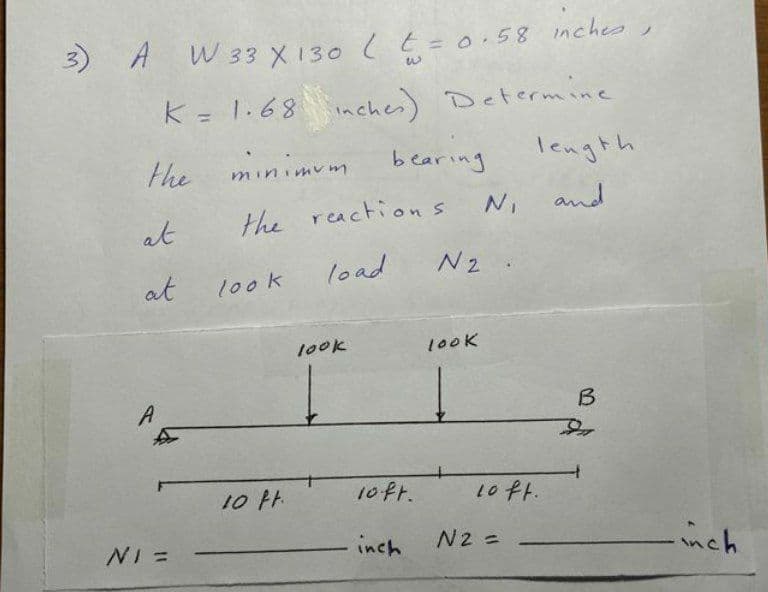 3) A W 33 X 130 ( tw = 0.58 inches ,
K = 1.68 inches) Determine
the minimum bearing length
at the reactions N1 and
at 100k load N2 .
100K 100K
A B
10 ft. 10ft. 10 ft.
N1 = ______ inch N2 = ______ inch